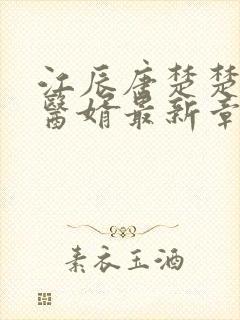 江辰唐楚楚
醫婿最新章
素衣玉酒